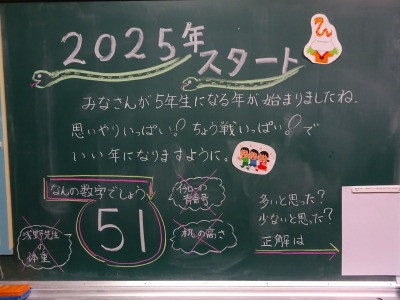 2025年
スタート
みなさんが5年生になる年が始まりましたね。
思いやりいっぱい!ちょう戦いっぱい!で
いい年になりますように。
なんの数字でしょう
51
浅野先生
の
体重
イチローの
背番号
机の高さ
多いと思った?
少ないと思った?
正解は